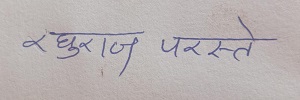 रघुराज परस्ते